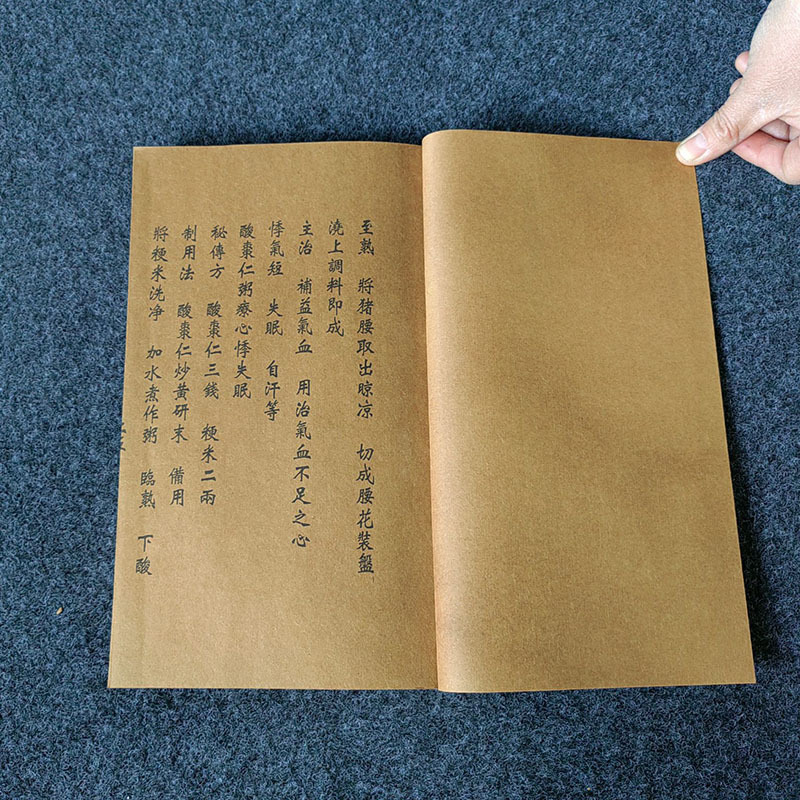 至熟 將猪腰取出晾凉 切成腰花裝盤
澆上調料即成
主治 補益氣血 用治氣血不足之心
悸氣短 失眠 自汗等
酸棗仁粥療心悸失眠
秘傳方 酸棗仁三錢 粳米二兩
制用法 酸棗仁炒黃研末 備用
將粳米洗净 加水煮作粥 臨熟 下酸